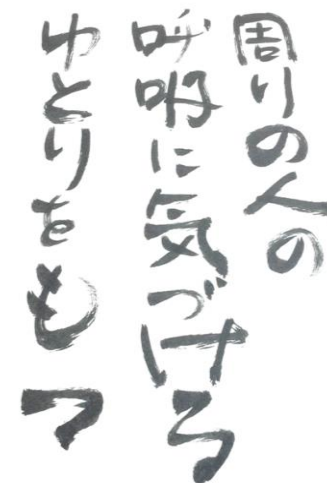 周りの人の
呼吸に気づける
ゆとりをもつ